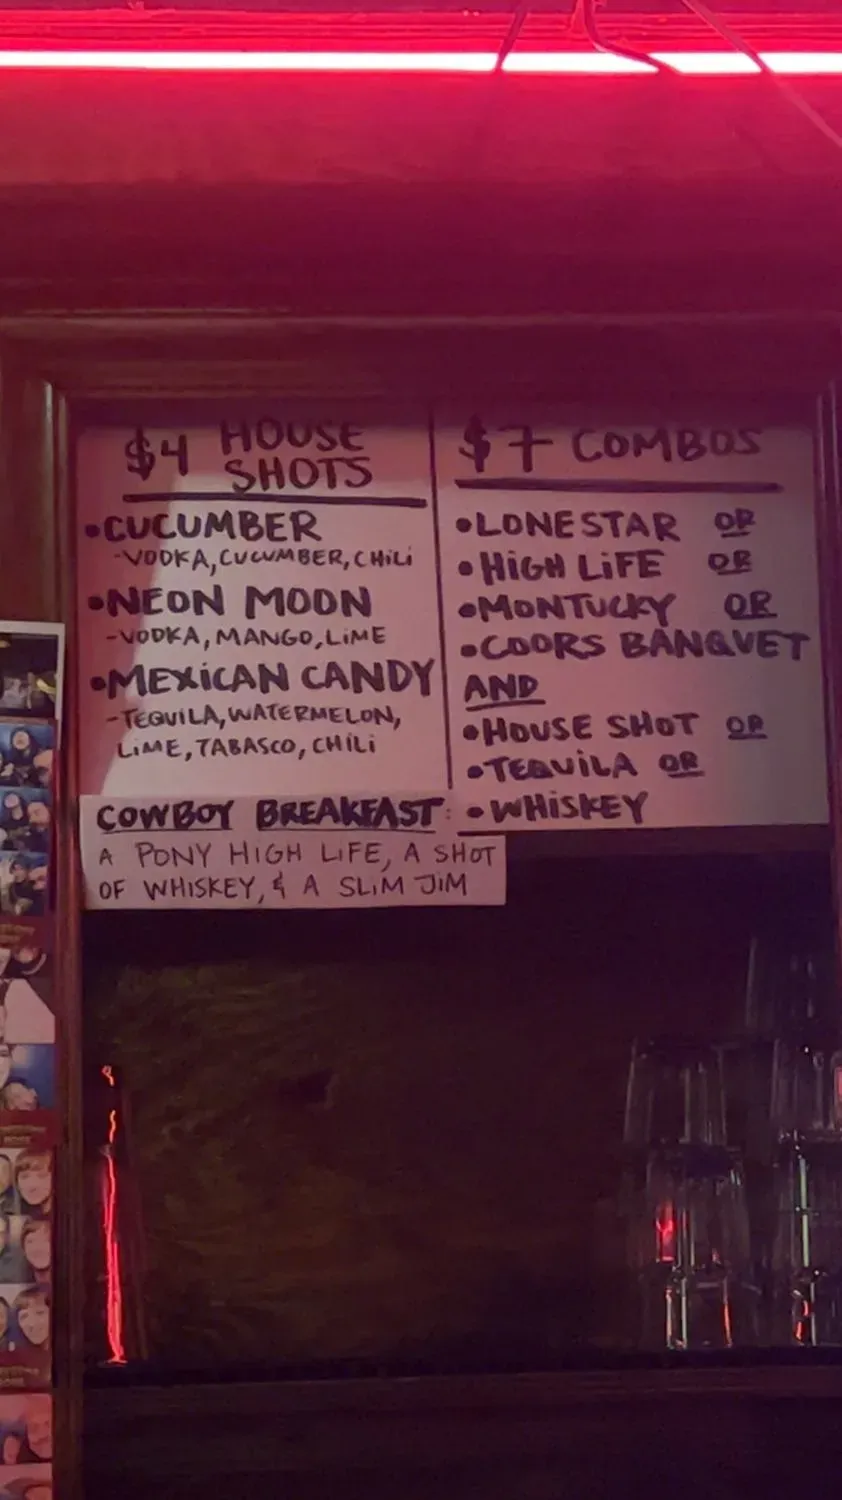 $4 HOUSE
SHOTS
•CUCUMBER
-VODKA, CUCUMBER, CHiLi
•NEON MOON
-VODKA, MANGO, LiME
•MEXiCAN CANDY
-TEQUiLA, WATERMELON,
LiME, TABASCO, CHiLi
$7 COMBOS
•LONESTAR OR
•HiGH LiFE OR
•MONTUCKY OR
•COORS BANQUET
AND
•HOUSE SHOT OR
•TEQUiLA OR
•WHiSKEY
COWBOY BREAKFAST:
A PONY HIGH LiFE, A SHOT
OF WHISKEY, & A SLiM JiM